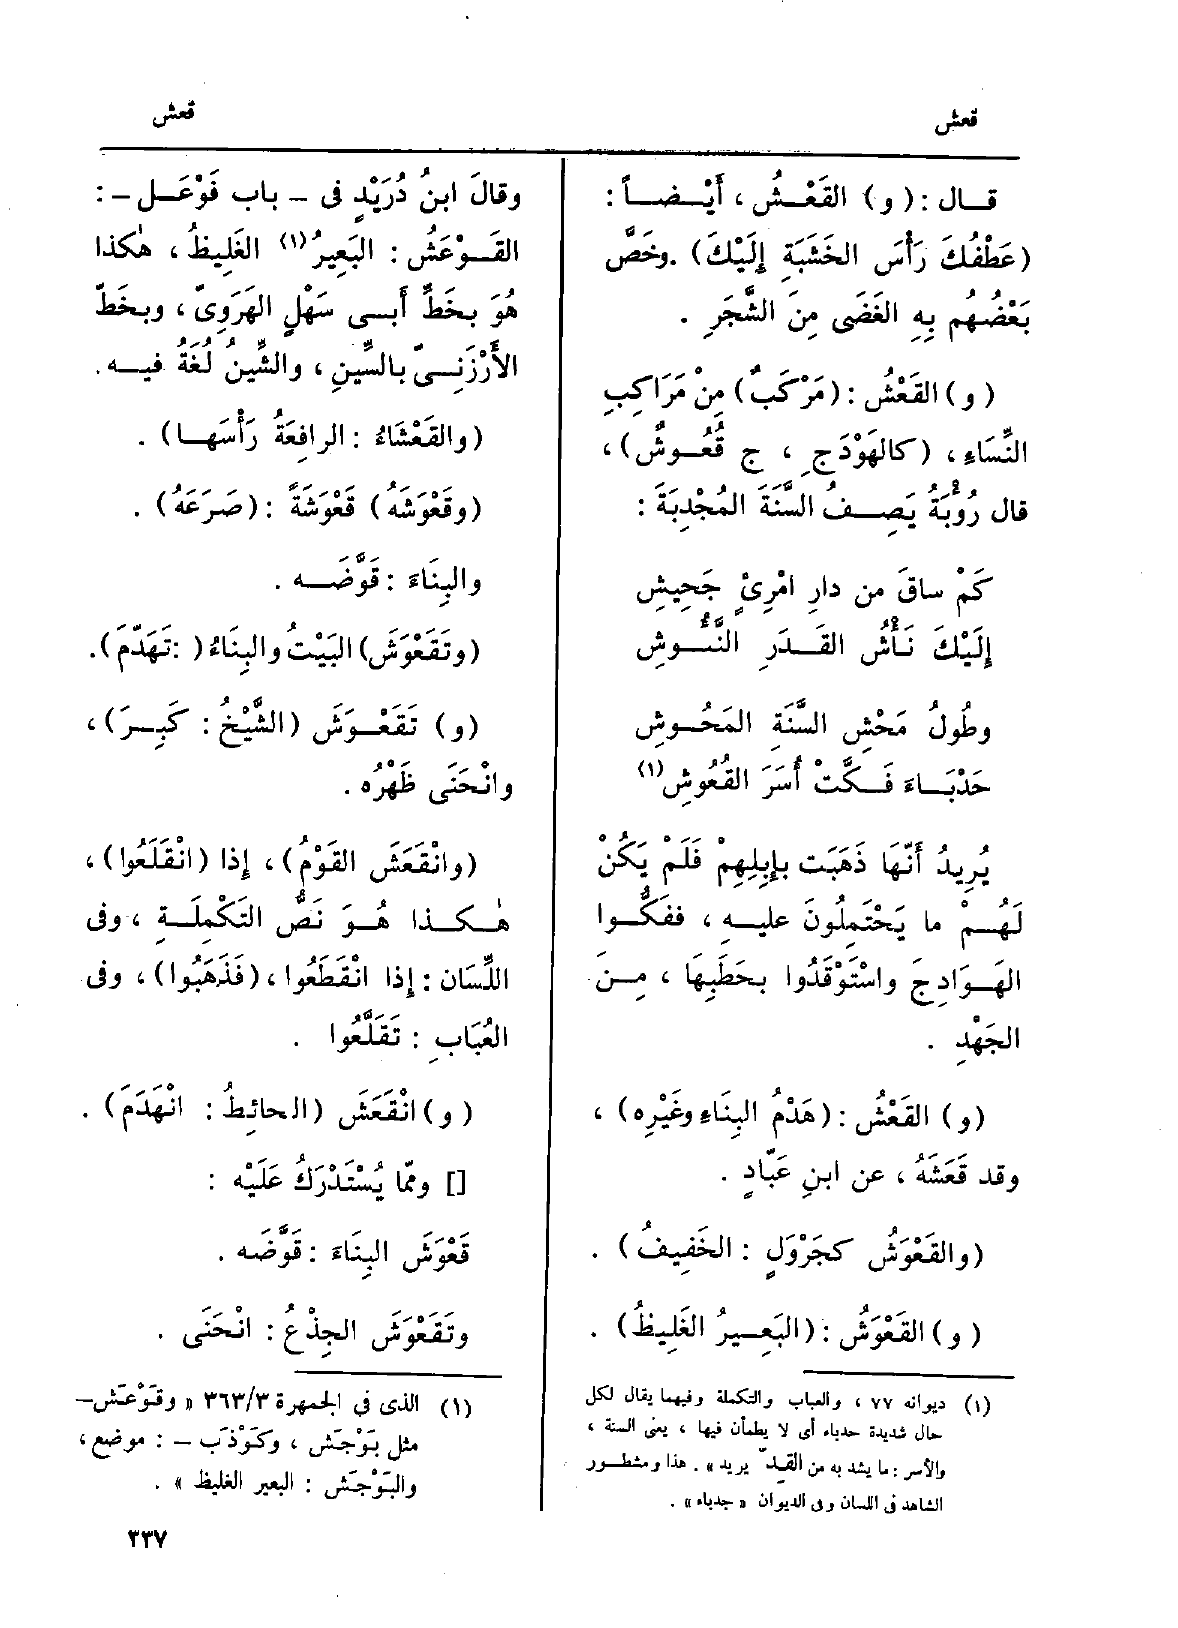 قعش
قعش
قــال : (و) القَعْــشُ ، أَيْــضــاً :
(عَطْفُكَ رَأْسَ الخَشَبَةِ إِلَيْكَ) .وخَصَّ
بَعْضُهُم بِهِ الغَضَى مِنَ الشَّجَرِ .
(و) القَعْشُ : (مَرْكَبٌ) مِنْ مَرَاكِبِ
النِّسَاءِ ، (كالهَوْدَجِ ، ج قُعُــوشٌ) ،
قال رُؤْبَةُ يَصِــفُ السَّنَةَ المُجْدِبَةَ :
كَمْ ساقَ من دارِ امْرِئٍ جَحِيشِ
إِلَيْكَ نَــأْشُ القَــدَرِ النَّــؤُوشِ
وطُولُ مَحْشِ السَّنَةِ المَحُــوشِ
حَدْبَــاءَ فَــكَّتْ أُسَرَ القُعُوشِ (١)
يُرِيدُ أَنَّهَا ذَهَبَت بإِبِلِهِمْ فَلَمْ يَكُنْ
لَهُــمْ ما يَحْتَمِلُونَ عليــهِ ، ففَكُّــوا
الهَــوَادِجَ واسْتَوْقَدُوا بحَطَبِهَا ، مِــنَ
الجَهْدِ .
(و) القَعْشُ : (هَدْمُ البِنَاءِ وغَيْرِه) ،
وقد قَعَشَهُ ، عن ابنِ عَبّادٍ .
(والقَعْوَشُ كجَرْوَلٍ : الخَفِيفُ) .
(و) القَعْوَشُ : (البَعِــيرُ الغَلِيظُ) .
(١) ديوانه ٧٧ ، والعباب والتكملة وفيهما يقال لكل
حال شديدة حدباء أى لا يطمأن فيها ، يعنى السنة ،
والأسر : ما يشد به من القِدّ يريد » . هذا ومشطــور
الشاهد فى اللسان وفى الديوان « جدباء » .
وقالَ ابنُ دُرَيْدٍ فى – باب فَوْعَــل – :
القَــوْعَشُ : البَعِيرُ (١) الغَلِيظُ ، هٰكذا
هُوَ بخَطِّ أَبِــى سَهْلٍ الهَرَوِىّ ، وبخَطّ
الأَرْزَنِــىّ بالسِّينِ ، والشِّينُ لُغَةٌ فيــه .
(والقَعْشَاءُ : الرافِعَةُ رَأْسَهــا) .
(وقَعْوَشَهُ) قَعْوَشَةً : (صَرَعَهُ) .
والبِنَاءَ : قَوَّضَــه .
(وتَقَعْوَشَ) البَيْتُ والبِنَاءُ( : تَهَدَّمَ) .
(و) تَقَعْــوَشَ (الشَّيْخُ : كَبِــرَ) ،
وانْحَنَى ظَهْرُه .
(وانْقَعَشَ القَوْمُ) ، إِذا (انْقَلَعُوا) ،
هٰــكــذا هُــوَ نَصُّ التَكْمِلَــةِ ، وفى
اللِّسَان : إِذا انْقَطَعُوا ، (فَذَهَبُوا) ، وفى
العُبَابِ : تَقَلَّعُوا .
(و) انْقَعَشَ (الحائِطُ : انْهَدَمَ) .
[] وممّا يُسْتَدْرَكُ عَلَيْه :
قَعْوَشَ البِنَاءَ : قَوَّضَه .
وتَقَعْوَشَ الجِذْعُ : انْحَنَى .
(١) الذى فى الجمهرة ٣٦٣/٣ « وقَــوْعَــش –
مثل بَوْجَش ، وكَوْذَب – : موضع ،
والبَوْجَش : البعير الغليظ » .
٣٣٧